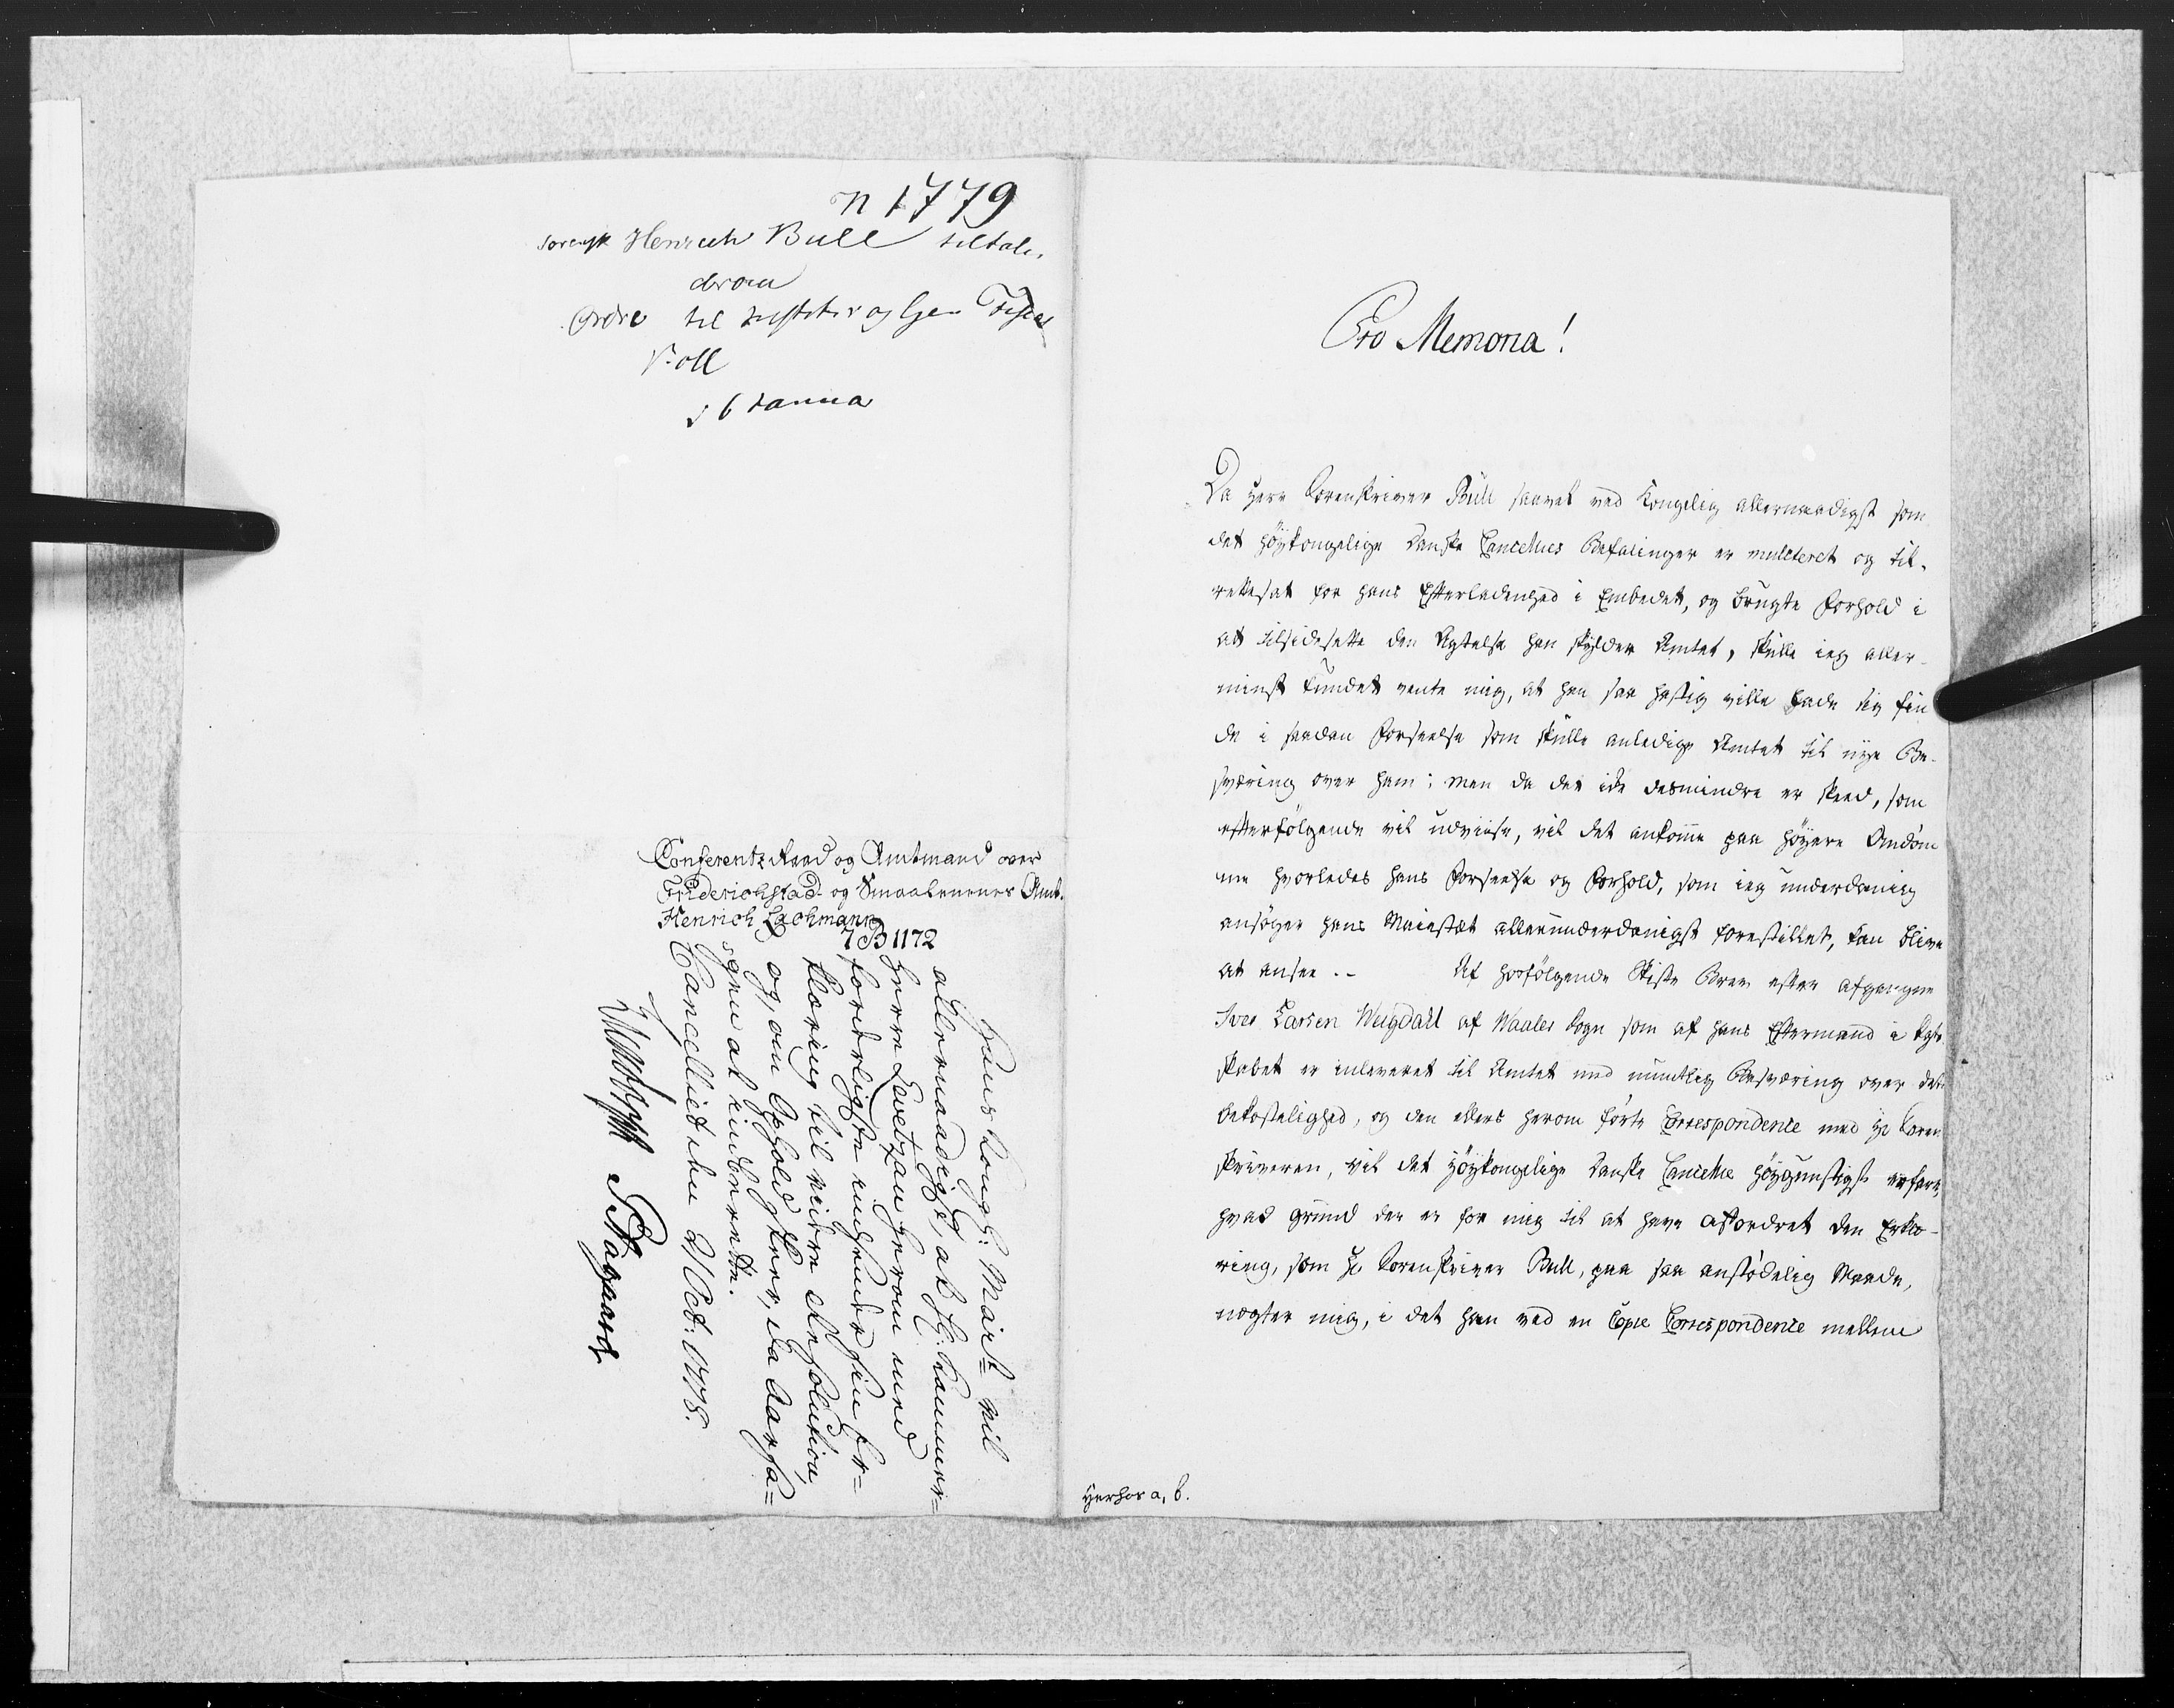 n 1779
Sorensk Henrich Bull tiltale,
derom
Ordre til Justitsr og Gen Fiscal
Koll
d 6 Janua
Conferentz Raad og Amtmand over
Friderichstad og Smaalenenes Amt.
Henrich Lachmann
7 B 1172
Hans Kongl: Mai<sup>st</sup>= vil
allernaadigst, at H: Kammer=
Herre Levetzau herom med
forderligste indhender sin Er=
klæring til videre Resolution,
og, om Ophold skeer, da Aarsa=
gen at indberette.
Cancelliet den 21 Oct: 1778.
P Aagaard
Pro Memoria!
Da Herr Sorenskriver Bull saavel ved Kongelig allernaadigst som
det höykongelige Danske Cancellies Befalinger er mulcteret og til-
rettesat for hans Efterladenhed i Embedet, og brugte Forhold i
at tilsidesette den Agtelse han skylder Amtet, skulle ieg aller-
minst kundet vente mig, at han saa hastig ville lade sig fin
de i saadan Forseelse som skulle anledige Amtet til nye Be-
sværing over ham; men da det icke desmindre er skeed, som
efterfölgende vil udviise, vil det ankomme paa höyere Omdöm
me hvorledes hans Forseelse og Forhold, som ieg underdanig
ansöger hans Maiestæt allerunderdanigst forestillet, kan blive
at ansee .- Af hosfölgende Skifte Brev efter afgangne
Iver Larsen Weigdall af Waaler Sogn som af hans Eftermand i Egte
skabet er inleveret til Amtet med mundtlig Besværing over dets
bekostelighed, og den ellers herom förte Correspondence med Hr Soren
skriveren, vil det Höykongelige Danske Cancellie höygunstigst erfare,
hvad grund der er for mig til at have affordret den Erklæ-
ring, som Hr Sorenskriver Bull, paa saa anstödelig Maade,
nægter mig, i det han ved en Copie Correspondence mellem
Herhos a, b.